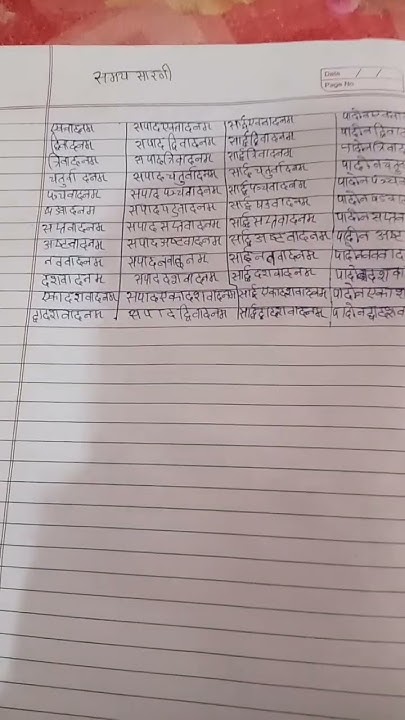 समय सारणी
Date / /
Page No.
एकवादनम सपादएकवादनम सार्द्धएकवादनम पादोनएकवा
द्विवादनम सपादद्विवादनम सार्द्धद्विवादनम पादोनद्विवाद
त्रिवादनम सपादत्रिवादनम सार्द्धत्रिवादनम पादोनत्रिवाद
चतुर्वादनम सपादचतुवादनम सार्द्धचतुर्वादनम पादोनचतु
पञ्चवादनम सपादपञ्चवादनम सार्द्धपञ्चवादनम पादोनपञ्च
सपादषडवादनम
सप्तवादनम सपादसप्तवादनम सार्द्धसप्तवादनम पादोनसप्तव
अष्टवादनम सपादअष्टवादनम सार्द्धअष्टवादनम पादोन अष्ट
नववादनम सार्द्धनववादनम
दशवादनम सपाददशवादनम सार्द्धदशवादनम
एकादशवादनम सपादएकादशवादनम सार्द्धएकादशवादनम पादोनएकादश
द्वादशवादनम सपादद्विवादनम सार्द्धद्वादशवादनम